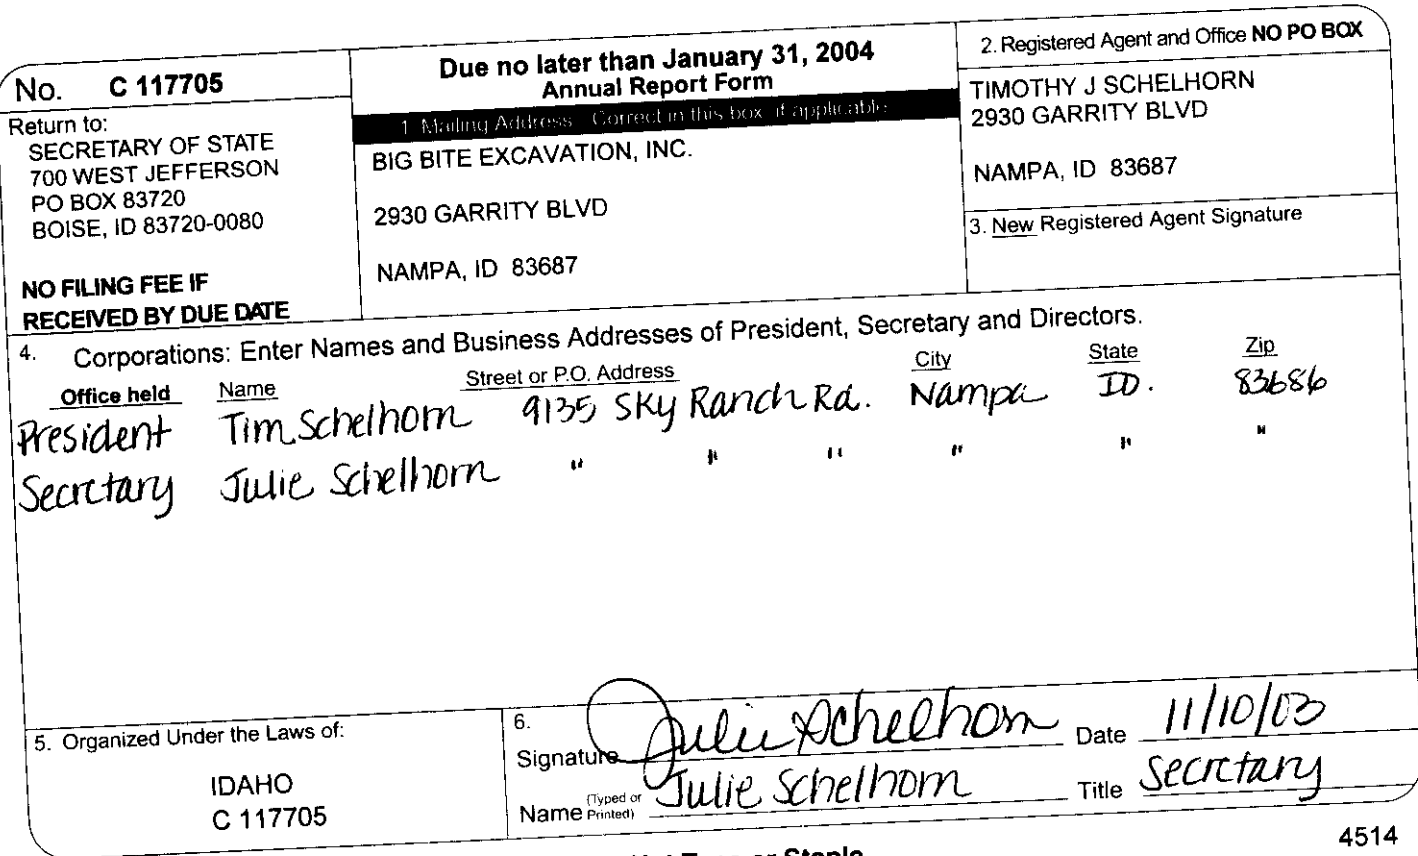 No. C 117705
Return to:
SECRETARY OF STATE
700 WEST JEFFERSON
PO BOX 83720
BOISE, ID 83720-0080
NO FILING FEE IF
RECEIVED BY DUE DATE
Due no later than January 31, 2004
Annual Report Form
1. Mailing Address: Correct in this box if applicable.
BIG BITE EXCAVATION, INC.
2930 GARRITY BLVD
NAMPA, ID 83687
2. Registered Agent and Office NO PO BOX
TIMOTHY J SCHELHORN
2930 GARRITY BLVD
NAMPA, ID 83687
3. New Registered Agent Signature
4. Corporations: Enter Names and Business Addresses of President, Secretary and Directors.
Office held Name Street or P.O. Address City State Zip
President Tim Schelhorn 9135 Sky Ranch Rd. Nampa ID. 83686
Secretary Julie Schelhorn " " " " " "
5. Organized Under the Laws of:
IDAHO
C 117705
6.
Signature Julie Schelhorn Date 11/10/03
Name (Typed or Printed) Julie Schelhorn Title Secretary
or Staple
4514